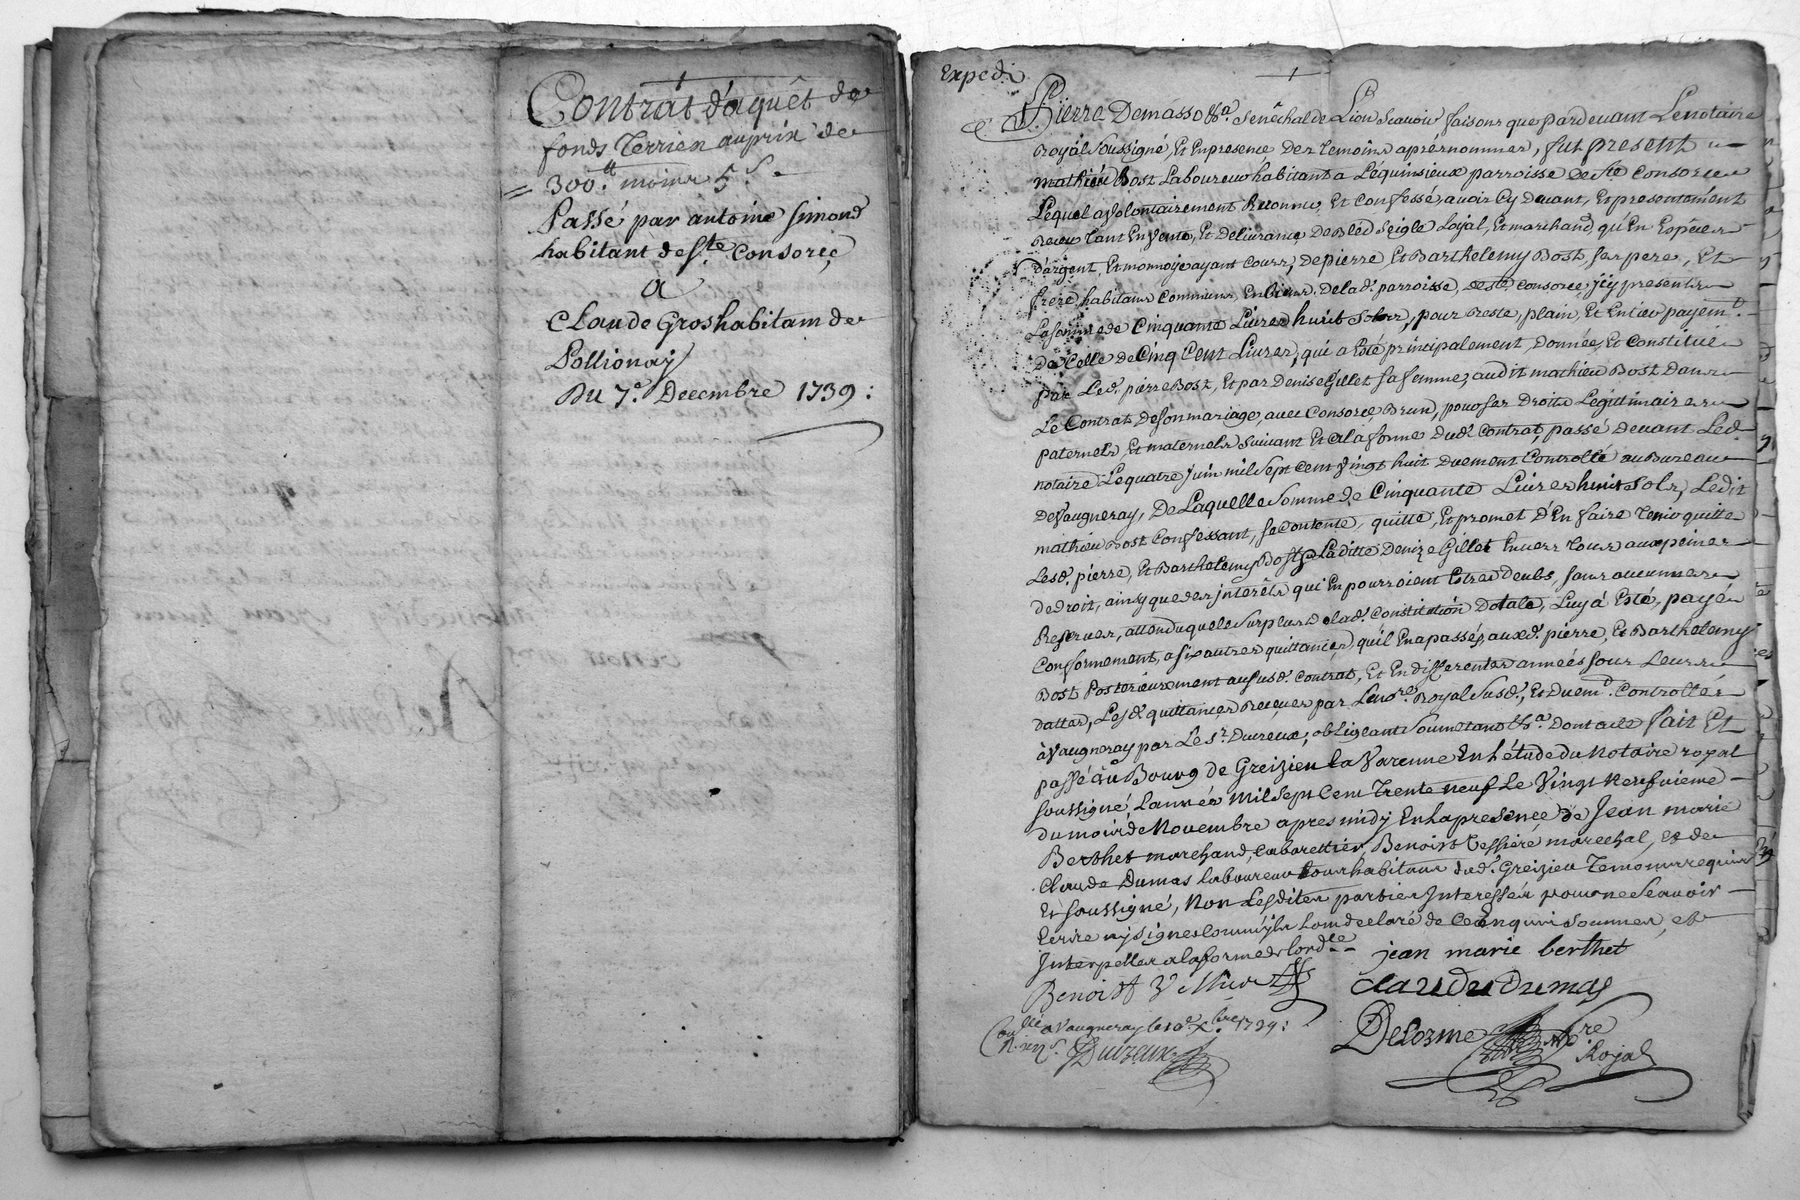 Contrat d'aquêt de
fonds Terrien au prix de
300.tt moins 5.s
Passé par antoine simond
habitant de ste Consorce
a
Claude Gros habitant de
Pollionay
Du 7.e Decembre 1739:
Exped.
Pierre Demasso &a. Sénéchal de Lion Scavoir faisons que pardevant Le notaire
Royal Soussigné, Et En presence des temoins aprés nommes, fut present
mathieu Bost Laboureur habitant a Lequinsieux parroisse de ste Consorce
Lequel a volontairement Reconnu, Et Confessé, avoir Cy devant, Et presentément
Receu tant En vente, Et delivrance de Bled Seigle Loyal, Et marchand, qu'En Espéces
d'argent, Et monnoye ayant Cours, de pierre, Et Barthelemy Bost, ses pere, Et
frere habitans Communs En biens, de lad. parroisse, de ste consorce, jcy presents
La somme de Cinquante Livres huit Sols, pour Reste, plain, Et Entier payemt.
de Celle de Cinq Cent Livres, qui a Eté principalement, donnée, Et Constituée
par Led. pierre Bost, Et par Denise Gillet sa femme, audit mathieu Bost Dans
Le Contrat de son mariage, avec Consorce Brun, pour ses droits Legitimaires
paternels, Et maternels Suivant Et a la forme dud. Contrat, passé devant Led.
notaire Le quatre juin mil sept cent vingt huit duement Controllé au Bureau
de Vaugneray, De Laquelle Somme de Cinquante Livres huit Sols, Ledit
mathieu Bost Confessant, se Contente, quitte, Et promet d'En faire tenir quitte
Lesd. pierre, Et Barthelemy Bost, Laditte Denize Gillet Envers tous aux peines
de droit, ainsy que des jnterêts qui En pourroient Estre deubs, sans aucunes
Reserves, attendu que le surplus de lad. Constitution dotale, Luy a Eté, payé
Conformement, a six autres quittances, qu'il En a passé, auxd. pierre, Et Barthelemy
Bost Posterieurement au susd. contrat, Et En differentes années sous Leurs
dattes, Lesd. quittances Receues par Le nore. Royal Susd., Et duemt. Controllés
à Vaugneray par Le sr. Ducreux; obligeant Soumetant &a. Dont acte fait Et
passé au Bourg de Greizieu la Varenne En l'étude du Notaire royal
soussigné, L'année Mil Sept Cent Trente neuf Le Vingt Neufvieme
du mois de Novembre apres midy En la presence de Jean marie
Berthet marchand, Cabarettier, Benoist Vessiere marechal, Et de
Claude Dumas laboureur tous habitans dud. Greizieu Temoins requis
Et soussigné, Non Les dites parties Interessés pour ne Scavoir
Ecrire ny signer comm'yls L'ont declaré de Ce Enquis Sommes, et
Interpellés a la forme de L'ordce
Jean marie berthet
Benoist
claudu dumas
Coullé a Vaugneray le 10e Xbre 1739:
Ducreux
Delorme Nore
Royal